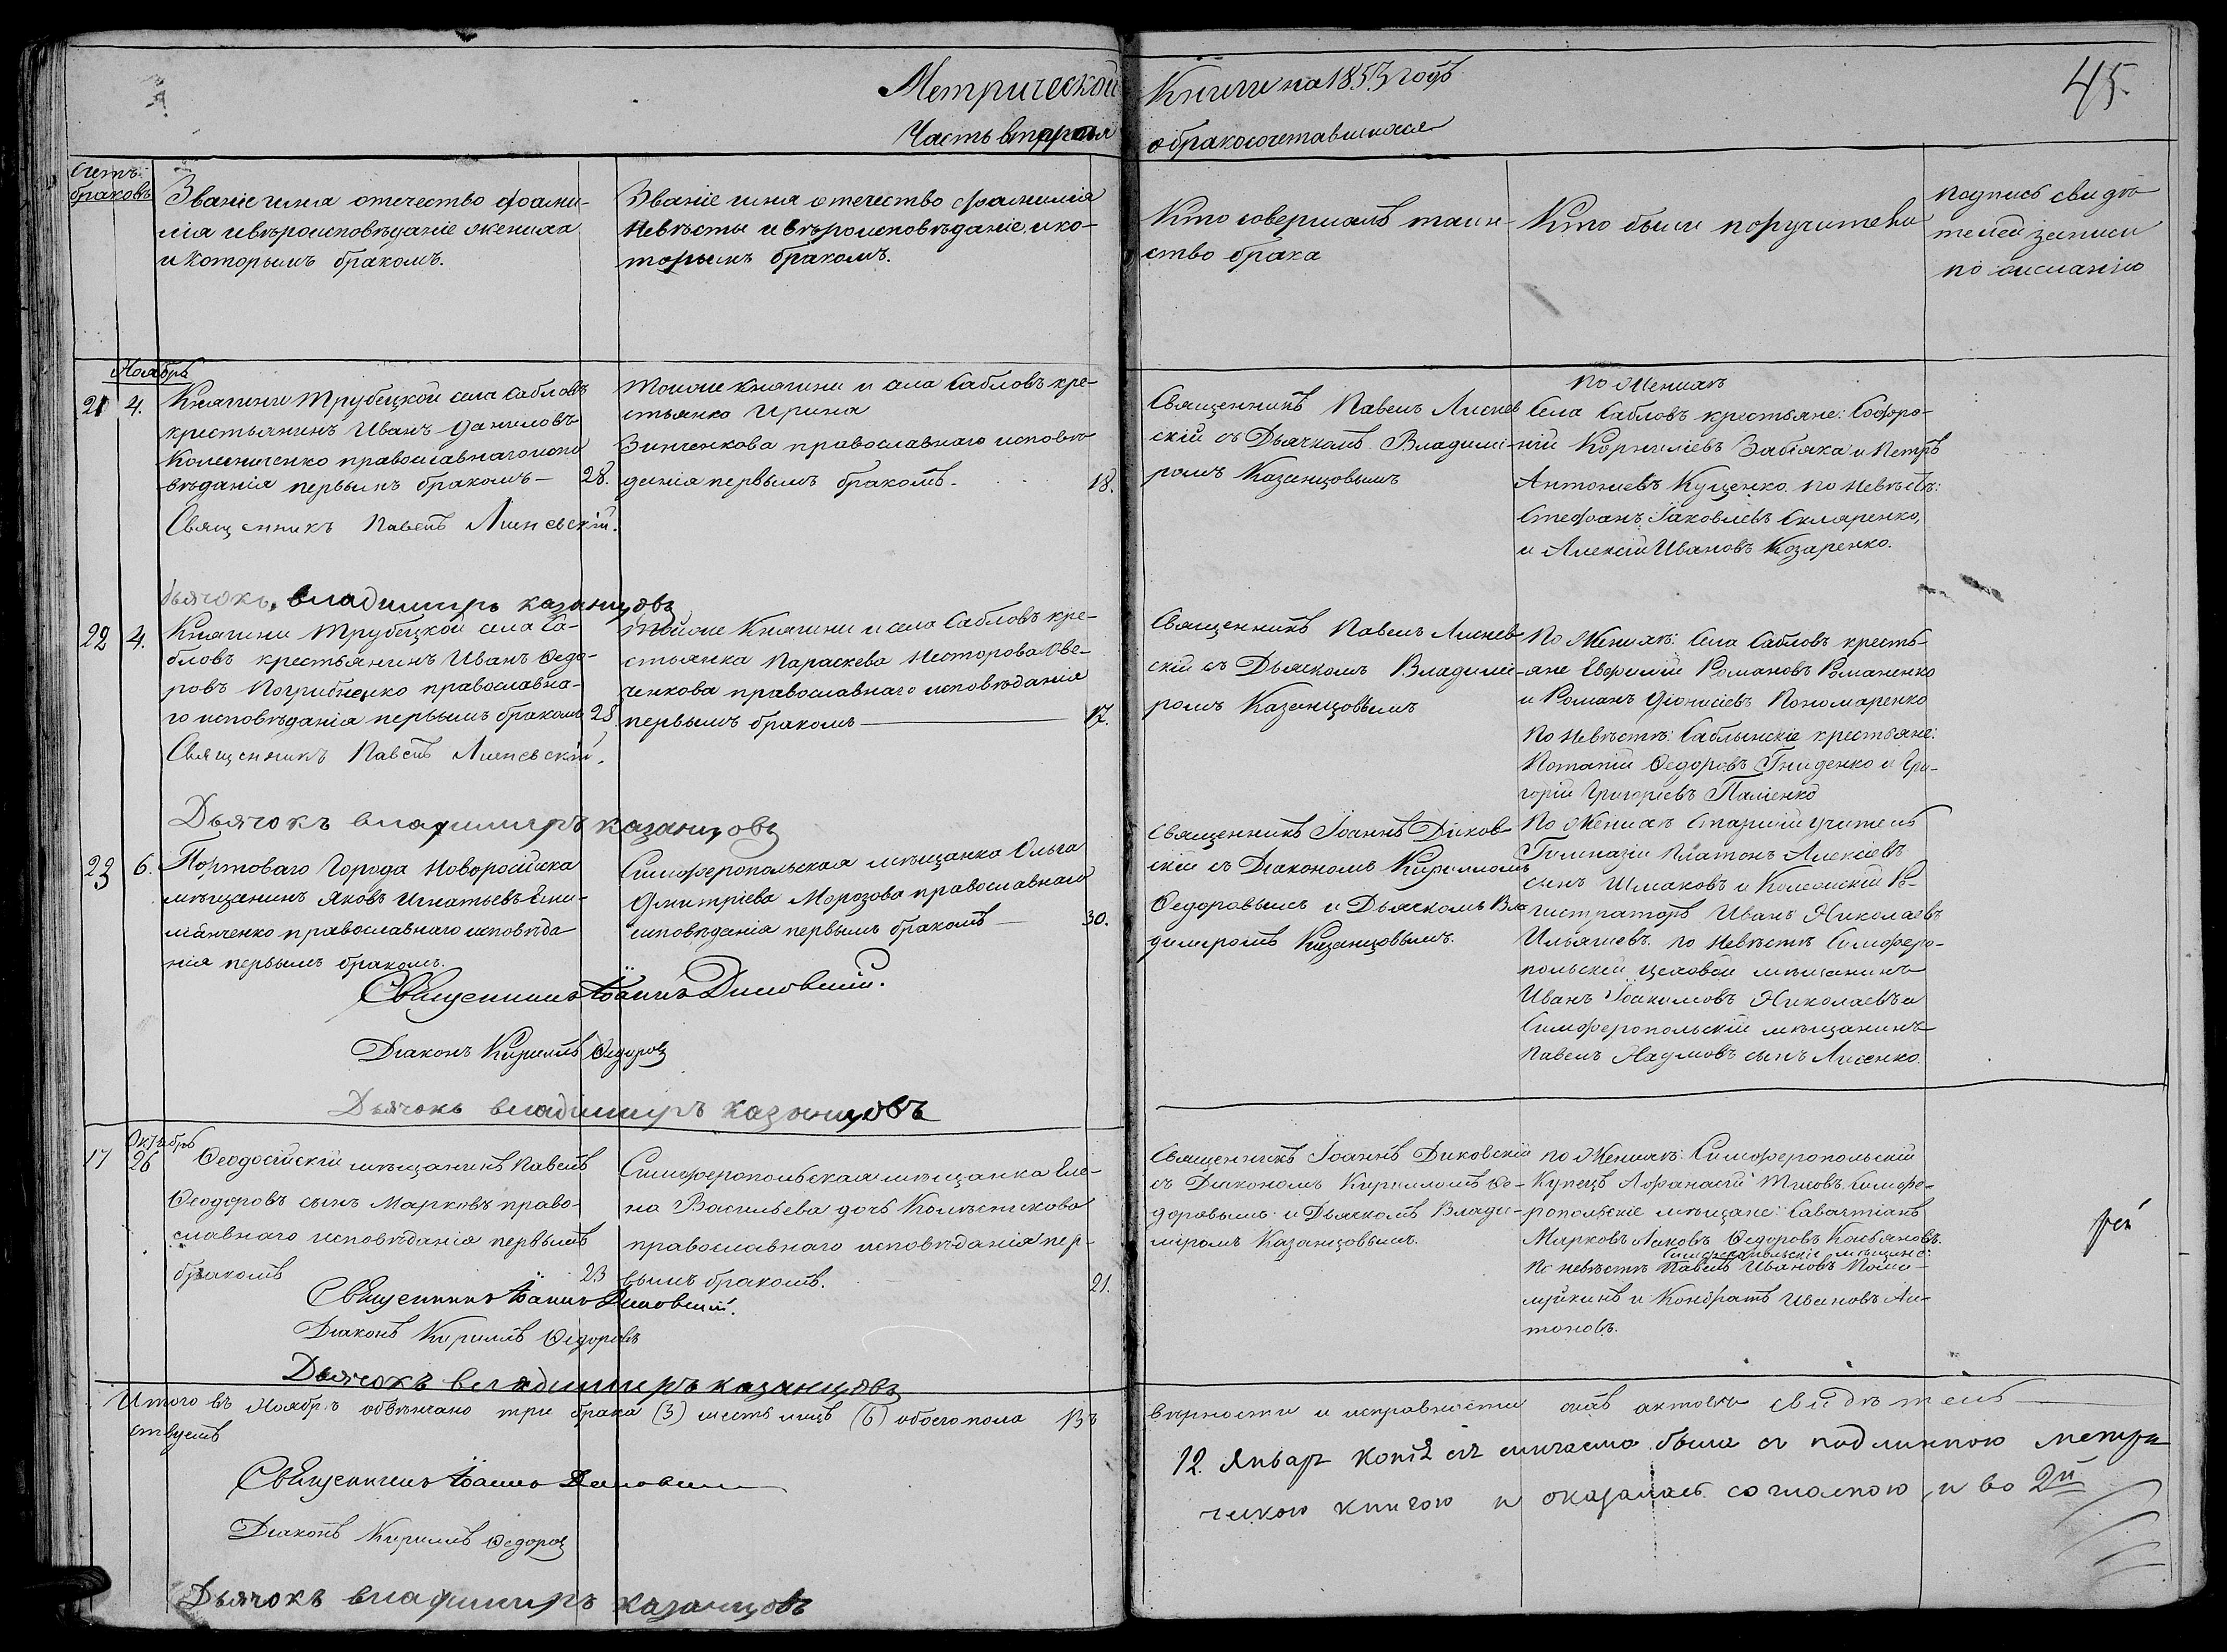 Метрической Книги на 1853 годъ
45.
Часть вторая о бракосочетавшихся
Счетъ браковъ
Званіе имя отечество фами-
лія и вѣроисповѣданіе жениха
и которымъ бракомъ.
Званіе имя отечество фамилія
невѣсты и вѣроисповѣданіе, и ко-
торымъ бракомъ.
Кто совершалъ таин-
ство брака
Кто были поручители
подпись свидѣ-
телей записи
по желанію
Ноябрь
21 4. Княгини Трубецкой села Сабловъ
крестьянинъ Иванъ Даниловъ
Колесниченко православнаго испо
вѣданія первымъ бракомъ — 28.
Священникъ Павелъ Лисневскій.
Дьячокъ владимиръ казанцовъ
Тойже Княгини и села Сабловъ кре-
стьянка Ирина
Зинченкова православнаго исповѣ-
данія первымъ бракомъ. 18.
Священникъ Павелъ Лиснев
скій съ Дьячкомъ Владими-
ромъ Казанцовымъ
По Женихѣ
Села Сабловъ крестьяне: Софро-
ній Корниліевъ Забіяка и Петръ
Антоніевъ Куценко. По невѣстѣ:
Стефанъ Іаковлевъ Скляренко,
и Алексій Ивановъ Козаренко.
22 4. Княгини Трубецкой села Са-
бловъ крестьянинъ Иванъ Федо-
ровъ Погрибненко православна-
го исповѣданія первымъ бракомъ 28.
Священникъ Павелъ Лисневскій.
Дьячокъ владимиръ казанцовъ
Тойже Княгини и села Сабловъ кре-
стьянка Параскева Несторова Ове-
ченкова православнаго исповѣданія
первымъ бракомъ — 17.
Священникъ Павелъ Лиснев
скій съ Дьячкомъ Владими-
ромъ Казанцовымъ
По Женихѣ: Села Сабловъ кресть-
яне Евфимій Романовъ Романенко
и Романъ Діонисіевъ Пономаренко
По невѣстѣ: Саблынскіе крестьяне:
Потапій Федоровъ Гниденко и Гри-
горій Григоріевъ Паліенко
23 6. Портоваго Города Новоросійска
мѣщанинъ Яковъ Игнатьевъ Еми-
ліанченко православнаго исповѣда
нія первымъ бракомъ.
Священникъ Іоаннъ Диковскій.
Діаконъ Кириллъ Федоровъ
Дьячокъ владимиръ казанцовъ
Симферопольская мѣщанка Ольга
Дмитріева Морозова православнаго
исповѣданія первымъ бракомъ — 30.
Священникъ Іоаннъ Диков-
скій съ Діакономъ Кирилломъ
Федоровымъ и Дьячкомъ Вла
димиромъ Казанцовымъ.
По Женихѣ Старшій учитель
Гимназіи Платонъ Алексіевъ
сынъ Шмаковъ и Колежскій Ре-
гистраторъ Иванъ Николаевъ
Ильяшевъ. по невѣстѣ Симферо-
польскій цеховой мѣщанинъ
Иванъ Іоакимовъ Николаевъ и
Симферопольскій мѣщанинъ
Павелъ Наумовъ сынъ Лисенко.
Октябрь
17 26 Феодосійскій мѣщанинъ Павелъ
Феодоровъ сынъ Марковъ право-
славнаго исповѣданія первымъ
бракомъ 23
Священникъ Іоаннъ Диковскій.
Діаконъ Кириллъ Федоровъ
Дьячокъ владимиръ казанцовъ
Симферопольская мѣщанка Еле-
на Васильева дочь Колѣсникова
православнаго исповѣданія пер-
вымъ бракомъ. 21.
Священникъ Іоаннъ Диковскій
съ Діакономъ Кирилломъ Фе-
доровымъ и Дьячкомъ Влади-
міромъ Казанцовымъ.
по Женихѣ: Симферопольскій
Купецъ Афанасій Симфе-
ропольскіе мѣщане: Савастіанъ
Марковъ Яковъ Федоровъ Касьяновъ.
Симферопольскіе мѣщане:
По невѣстѣ Павелъ Ивановъ
и Кондратъ Ивановъ Ан-
тоновъ.
Итого въ Ноябрѣ обвѣнчано три брака (3) шесть лицъ (6) обоего пола Въ
вѣрности и исправности сихъ актовъ свидѣтель-
ствуемъ
Священникъ Іоаннъ Диковскій
Діаконъ Кириллъ Федоровъ
Дьячокъ владимиръ казанцовъ
12. Январ копія сія сличаема была съ подлинною метри-
ческою книгою и оказалась согласною и во 2й